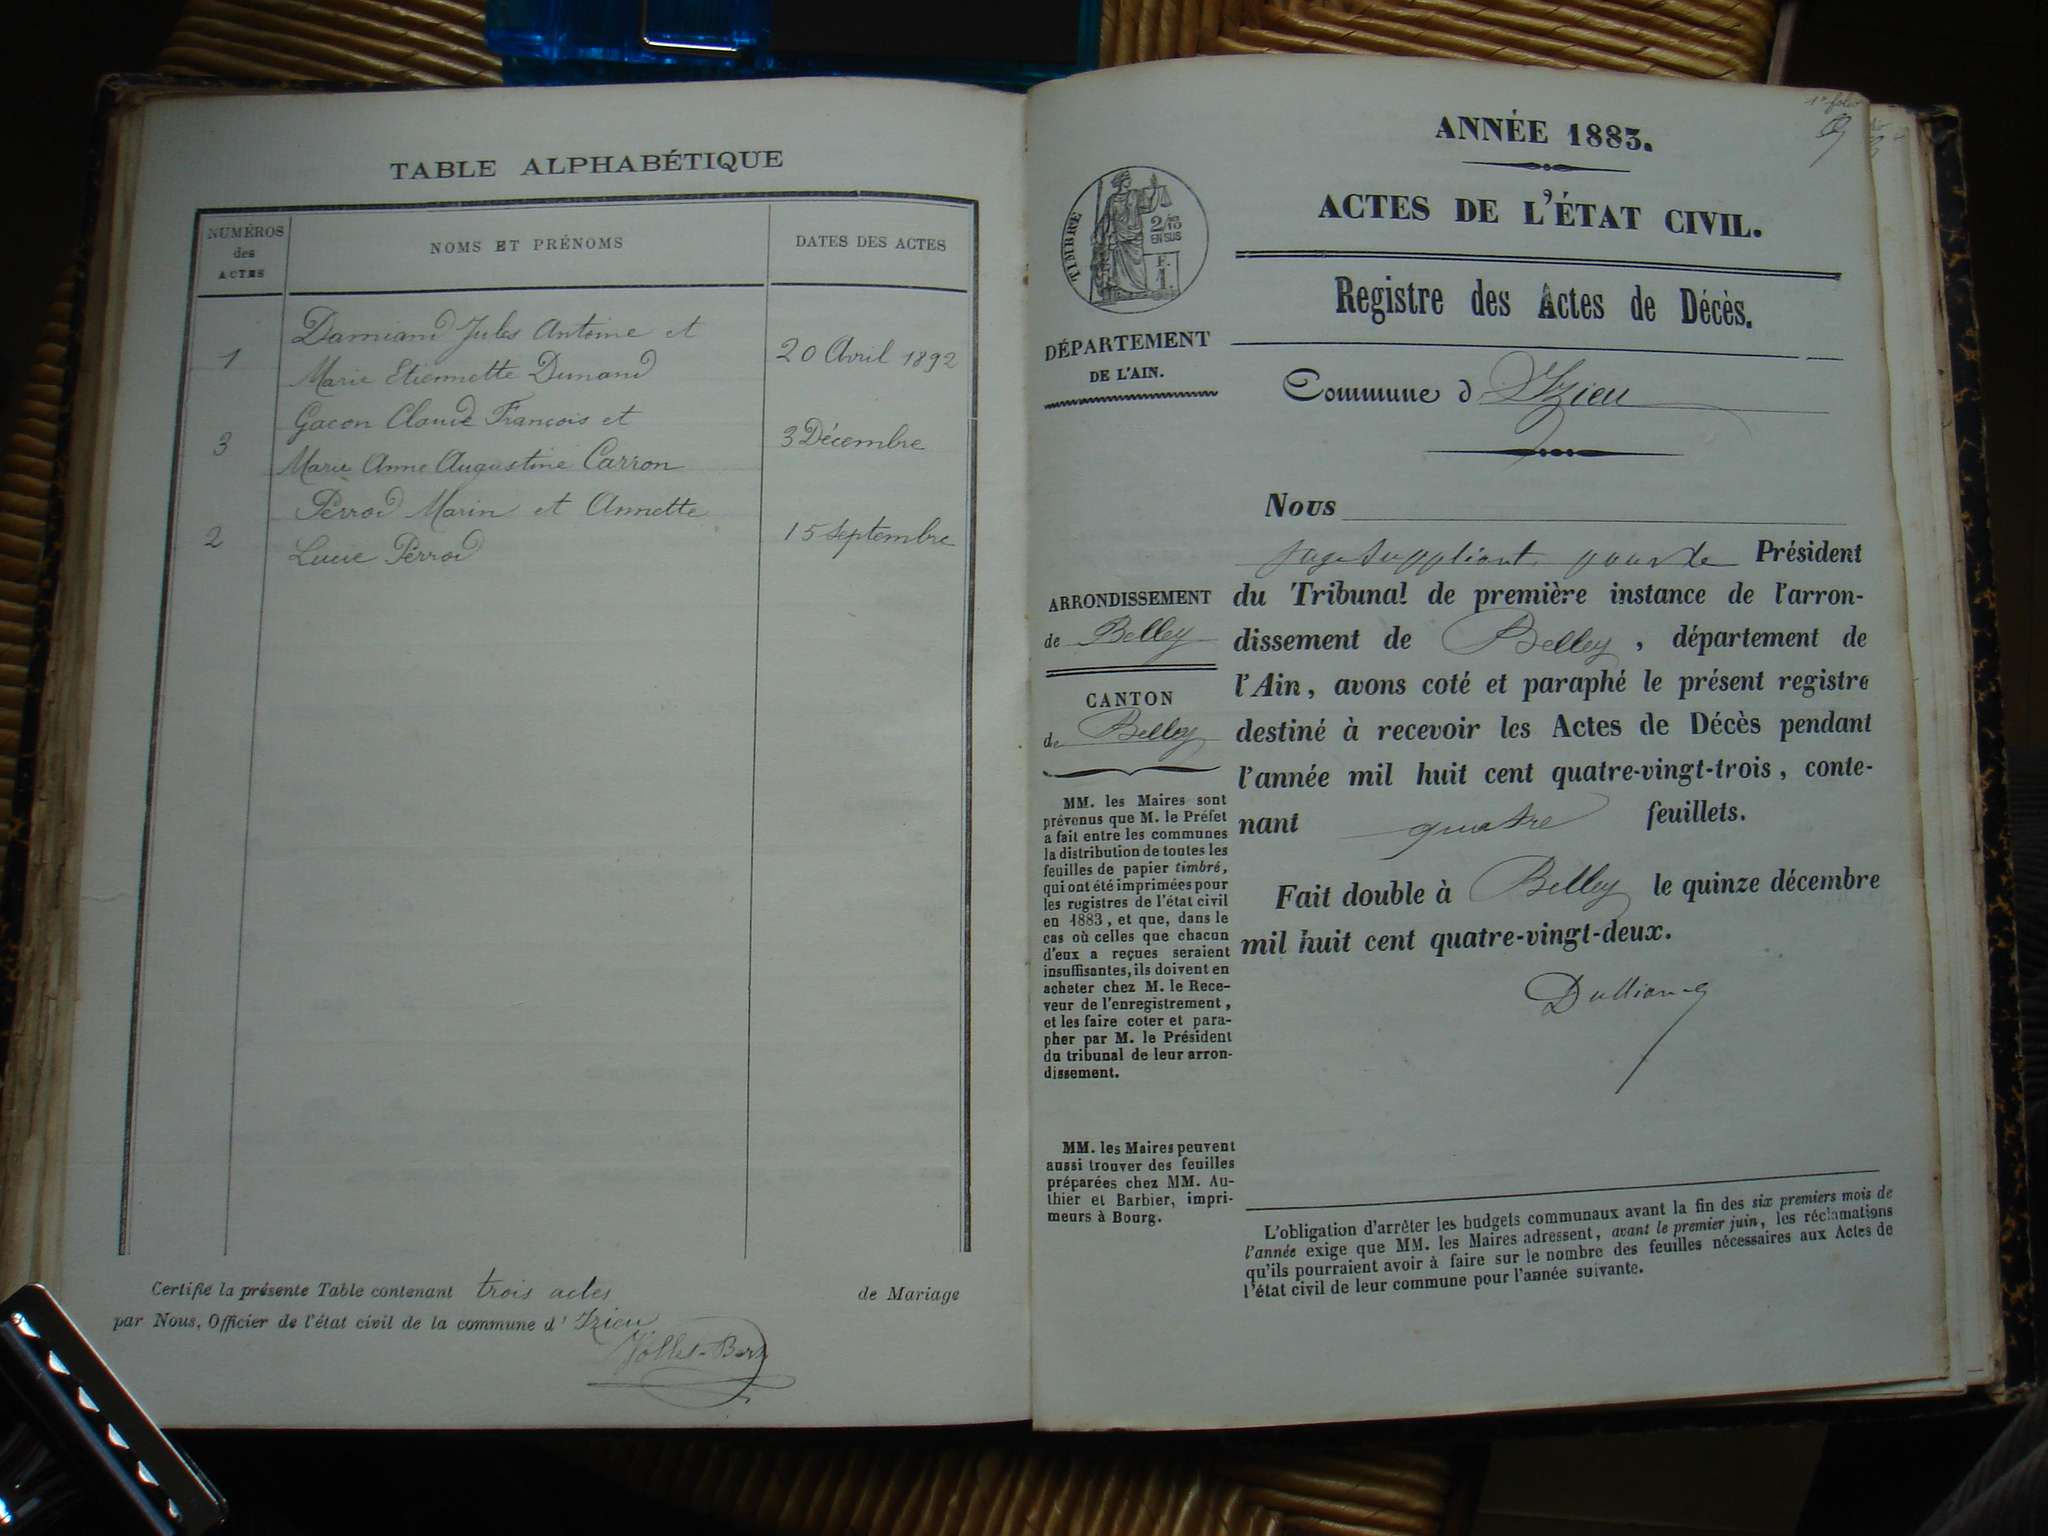 TABLE ALPHABÉTIQUE
NUMÉROS
des
ACTES
NOMS ET PRÉNOMS
DATES DES ACTES
Damiand Jules Antoine et
1
20 Avril 1892
Marie Etiennette Dunand
Gacon Claude François et
3
3 Décembre
Marie Anne Augustine Carron
Perrod Marin et Annette
2
15 Septembre
Lucie Perrod
Certifié la présente Table contenant trois actes de Mariage
par Nous, Officier de l'état civil de la commune d' Izieu
ANNÉE 1883.
ACTES DE L'ÉTAT CIVIL.
Registre des Actes de Décès.
Commune d Izieu
TIMBRE
2/10
EN SUS
F.
1.
DÉPARTEMENT
DE L'AIN.
ARRONDISSEMENT
de Belley
CANTON
de Belley
MM. les Maires sont
prévenus que M. le Préfet
a fait entre les communes
la distribution de toutes les
feuilles de papier timbré,
qui ont été imprimées pour
les registres de l'état civil
en 1883, et que, dans le
cas où celles que chacun
d'eux a reçues seraient
insuffisantes, ils doivent en
acheter chez M. le Rece-
veur de l'enregistrement,
et les faire coter et para-
pher par M. le Président
du tribunal de leur arron-
dissement.
MM. les Maires peuvent
aussi trouver des feuilles
préparées chez MM. Au-
thier et Barbier, impri-
meurs à Bourg.
Nous
juge suppléant pour le Président
du Tribunal de première instance de l'arron-
dissement de Belley, département de
l'Ain, avons coté et paraphé le présent registre
destiné à recevoir les Actes de Décès pendant
l'année mil huit cent quatre-vingt-trois, conte-
nant quatre feuillets.
Fait double à Belley le quinze décembre
mil huit cent quatre-vingt-deux.
L'obligation d'arrêter les budgets communaux avant la fin des six premiers mois de
l'année exige que MM. les Maires adressent, avant le premier juin, les réclamations
qu'ils pourraient avoir à faire sur le nombre des feuilles nécessaires aux Actes de
l'état civil de leur commune pour l'année suivante.